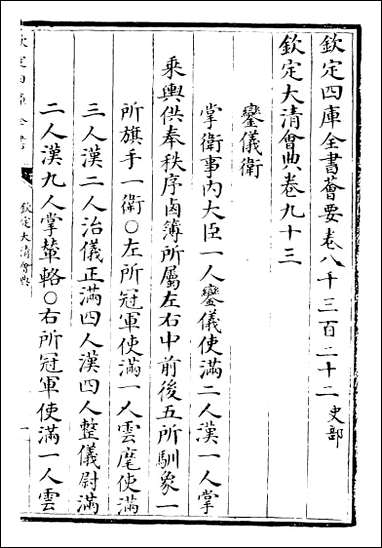 欽定四庫全書薈要卷八千三百二十二 史部
欽定大清會典卷九十三
鑾儀衛
掌衛事內大臣一人鑾儀使滿二人漢一人掌
乘輿供奉秩序鹵簿所屬左右中前後五所馴象一
所旗手一衛○左所冠軍使滿一人雲麾使滿
三人漢二人治儀正滿四人漢四人整儀尉滿
二人漢九人掌輦輅○右所冠軍使滿一人雲
欽定四庫全書
欽定大清會典
一